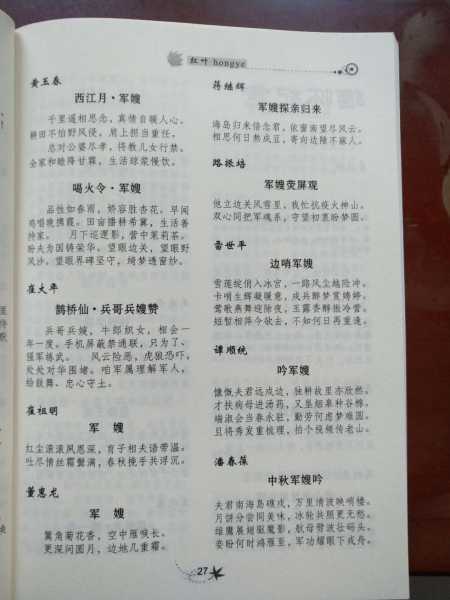 红叶 hongye
黄玉春
西江月·军嫂
千里遥相思念，真情自暖人心。
耕田不怕野风侵，肩上担当重任。
总对公婆尽孝，待教儿女行禁。
全家和睦降甘霖，生活绿浆慢饮。
喝火令·军嫂
品性如春雨，娇容胜杏花。早闻
鸡唱晚携霞。田亩播耕希冀，生活善
持家。 月下运莲影，营中茉莉茶。
盼夫为国铸荣华。望眼边关，望眼野
风沙。望眼界碑坚守，绮梦透窗纱。
崔大年
鹊桥仙·兵哥兵嫂赞
兵哥兵嫂，牛郎织女，相会一
年一度。手机屏蔽禁通联，只为了、
强军练武。 风云险恶，虎狼恐吓，
处处对华围堵。咱军属理解军人，
给鼓舞、忠心守土。
崔祖明
军 嫂
红尘滚滚风恩深，育子相夫语带温。
吐尽情丝霜鬓满，春秋挽手共浮沉。
董惠龙
军 嫂
篱角菊花香，空中雁唳长。
更深问圆月，边地几重霜。
蒋继辉
军嫂探亲归来
海岛归来倍念君，依窗南望尽风云。
相思何日熬成豆，寄向边陲不嫁人。
路振培
军嫂荧屏观
他立边关风雪里，我忙抗疫火神山。
双心同把军魂系，守望初衷盼梦圆。
雷世平
边哨军嫂
雪莲绽俏入冰宫，一路风尘越险冲。
卡哨生辉凝暖意，戍兵醉梦赏娉婷。
莺歌燕舞绽除夜，玉露香醇抵冷营。
短暂相萍今欲去，不知何日再重逢。
谭顺统
吟军嫂
慷慨夫君远戍边，独耕故里亦欣然。
才扶病母进汤药，又垦烟皋种谷棉。
端淑会当春永驻，勤劳何虑梦难圆。
且将秀发重梳理，拍个视频传老山。
潘春葆
中秋军嫂吟
夫君南海岛礁戍，万里情波映哨楼。
月饼分尝同美味，冰轮共照更无愁。
雄鹰展翅驱魔影，航母劈波壮码头。
妾盼何时鸿雁至，军功耀眼下戎舟。
27